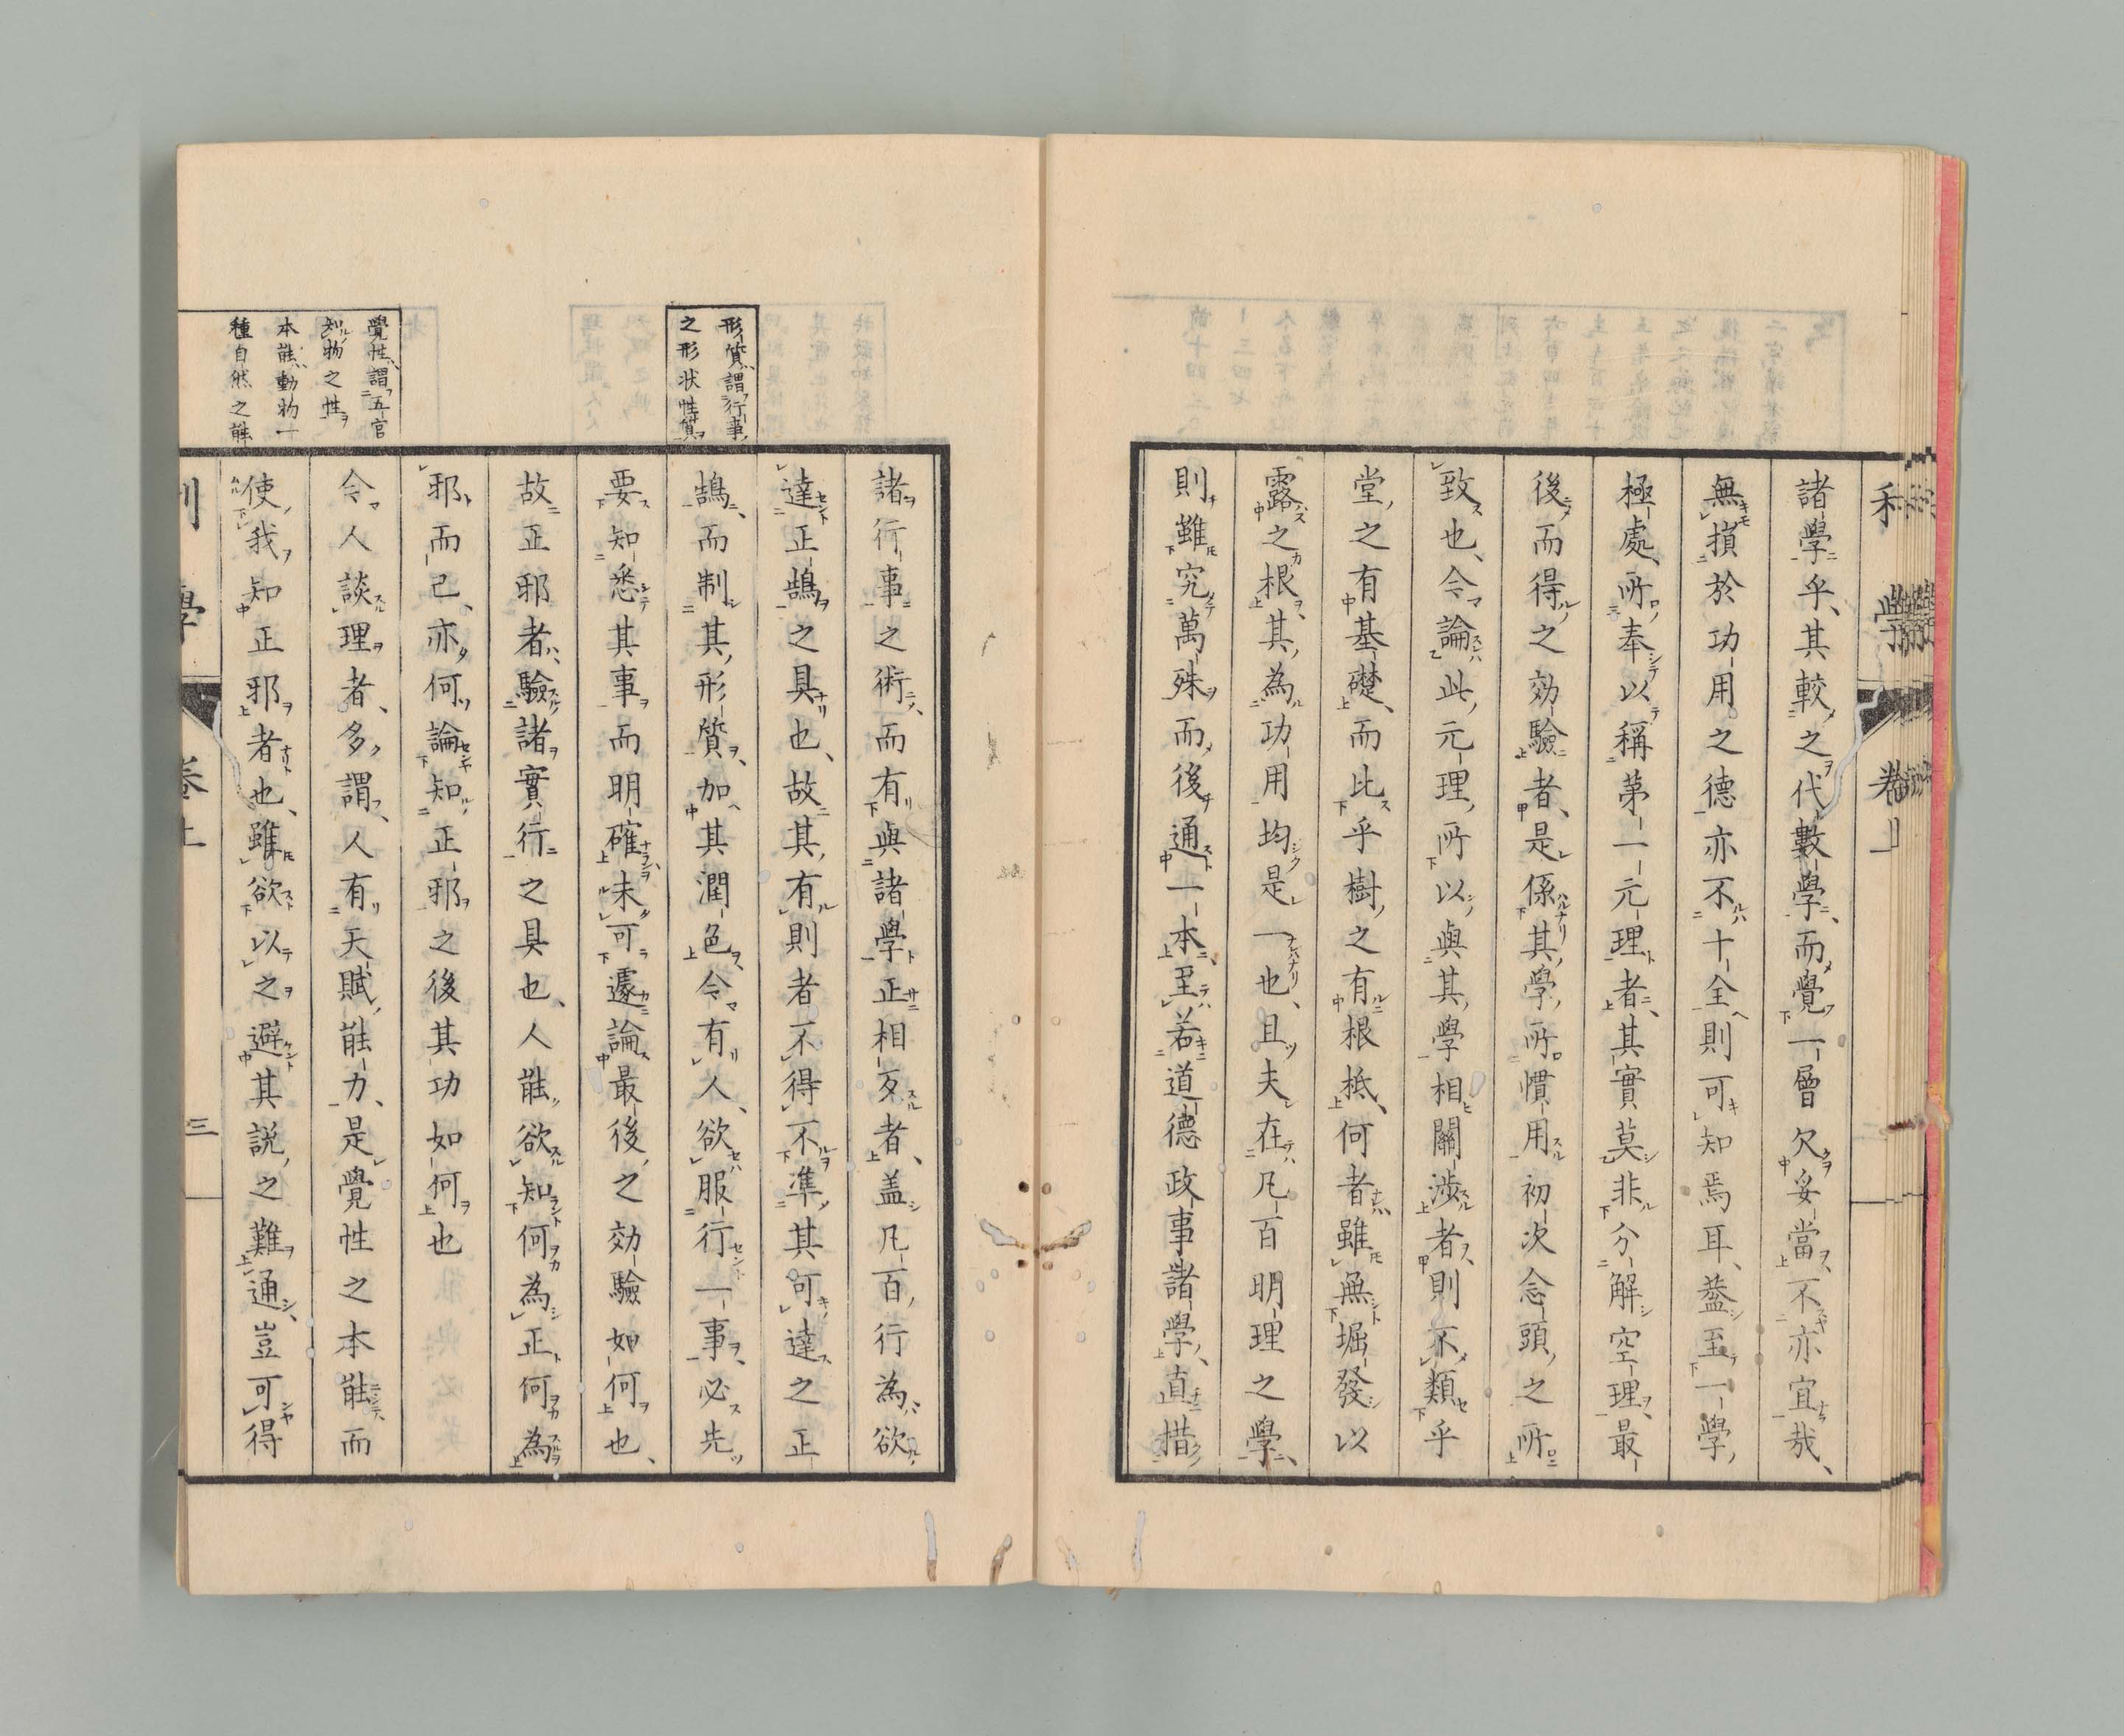 諸學乎、其較之代數學、而覺一層欠妥當、不亦宜哉、
無損於功用之德亦不十全則可知焉耳、蓋至一學、
極處、所奉以稱第一元理者、其實莫非分解空理、最
後而得之効驗者、是係其學所慣用初次念頭之所
致也、今論此元理所以與其學相關渉者、則不類乎
堂之有基礎、而比乎樹之有根柢、何者雖無堀發以
露之根、其為功用均是一也、且夫在凡百明理之學、
則雖究萬殊而後通一本、至若道德政事諸學、直措
形質謂行事
之形状性質
諸行事之術、而有與諸學正相反者、盖凡百行為欲
達正鵠之具也、故其有則者不得不準其可達之正
鵠、而制其形質、加其潤色、今有人、欲服行一事、必先
要知悉其事而明確未可遽論最後之効驗如何也、
故正邪者、驗諸實行之具也、人能欲知何為正何為
邪而已、亦何論知正邪之後其功如何也
覺性、謂五官
知物之性
本能、動物一
種自然之能
今人談理者、多謂、人有天賦能力、是覺性之本能而
使我知正邪者也、雖欲以之避其説之難通、豈可得
利學 卷上 三